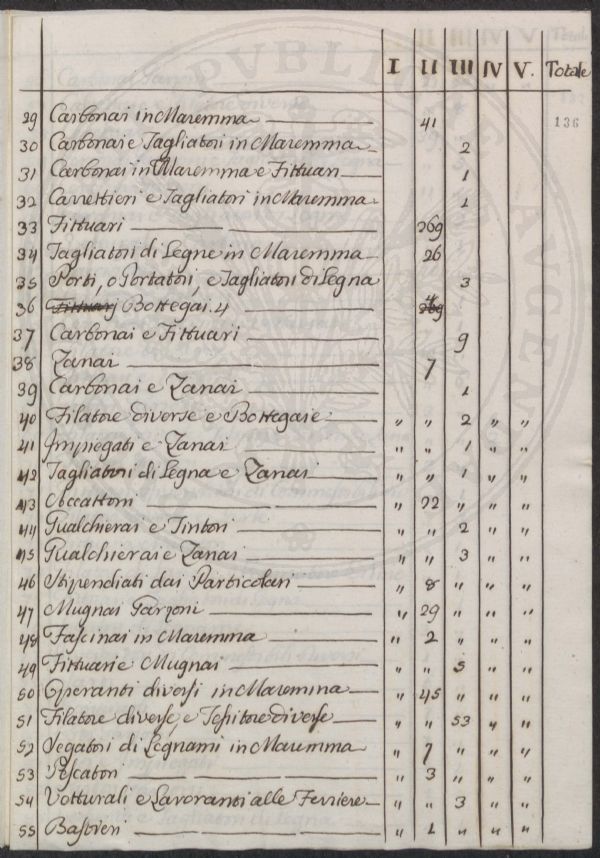 I II III IV V. Totale
136
29 Carbonai in Maremma 41
30 Carbonai e Tagliatori in Maremma 2
31 Carbonai in Maremma e Fittuari 1
32 Carrettieri e Tagliatori in Maremma 1
33 Fittuari 269
34 Tagliatori di Legne in Maremma 26
35 Porti, o Portatori, e Tagliatori di Legna 3
36 Fittuarj Bottegai. 4 4 269
37 Carbonai e Fittuari 9
38 Zanai 7
39 Carbonai e Zanai 1
40 Filatore diverse e Bottegaie " " 2 " "
41 Impiegati e Zanai " " 1 " "
42 Tagliatori di Legna e Zanai " " 1 " "
43 Accattoni " 22 " " "
44 Gualchierai e Tintori " " 2 " "
45 Gualchierai e Zanai " " 3 " "
46 Stipendiati dai Particolari " 8 " " "
47 Mugnai Garzoni " 29 " " "
48 Fascinai in Maremma " 2 " " "
49 Fittuari e Mugnai " " 5 " "
50 Operanti diversi in Maremma " 45 " " "
51 Filatore diverse, e Tessitore diverse " " 53 " "
52 Segatori di Legnami in Maremma " 7 " " "
53 Pescatori " 3 " " "
54 Vetturali e Lavoranti alle Ferriere " " 3 " "
55 Bastieri " 1 " " "
PUBLICAE
AUGEN